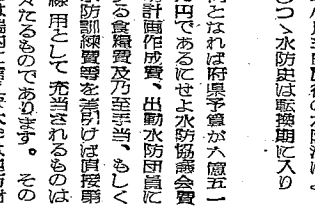 つゝ水防史は転換期に入り
何となれば府県予算が六億五一
円であるにせよ水防協議会費
計画作成費、出動水防団員に
る食糧費及乃至手当、もしく
防訓練費等を差引けば直接
線用として充当されるものは
々たるものであります。その